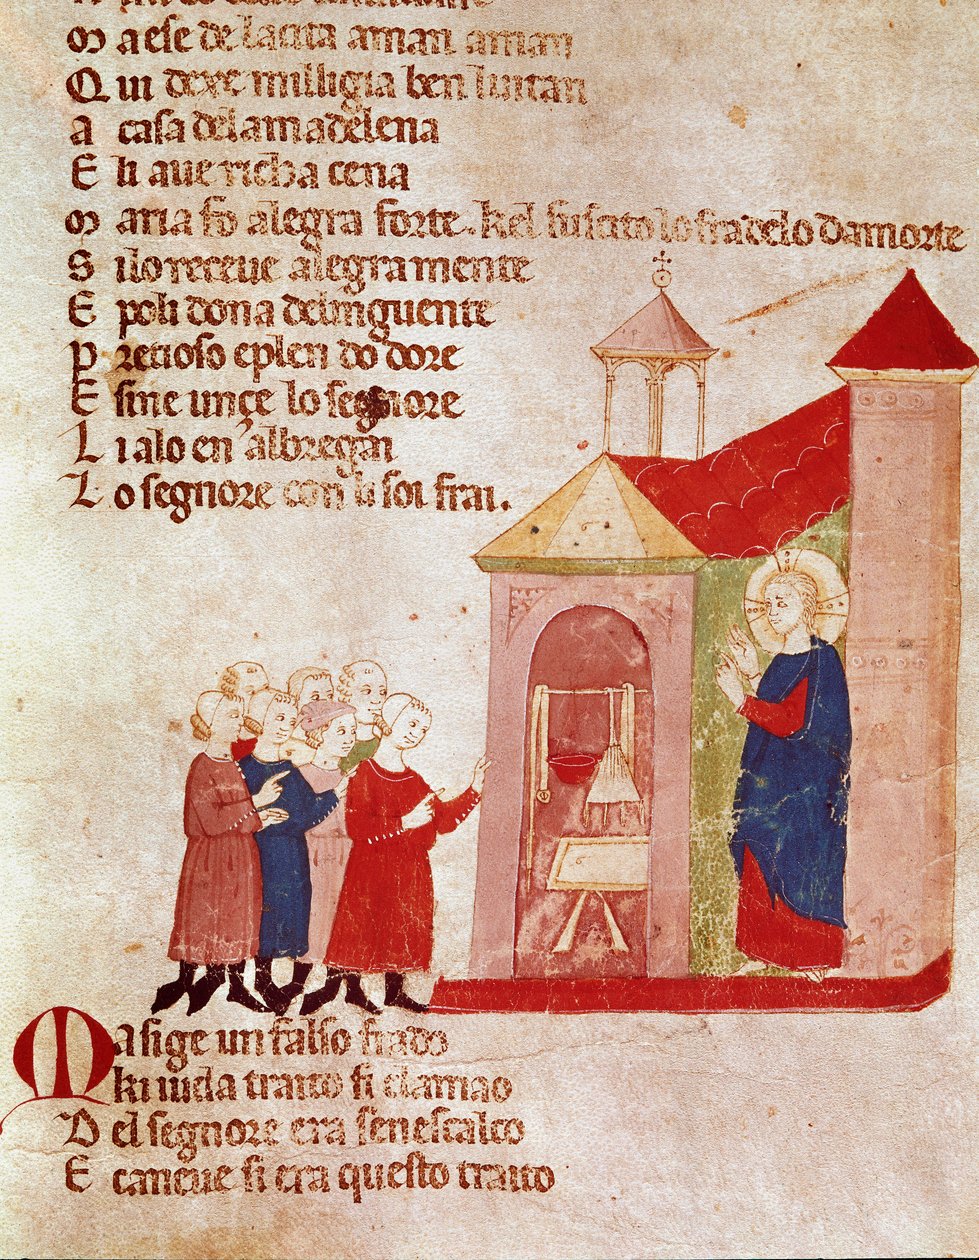 M aese de lacita aman aman
Q ui dexe milligia ben luitan
a casa delamadelena
E li aue richa cena
M aria fo alegra forte. kel suscito lo fradelo damorte
S ilo receue alegramente
E poli dona delinguente
p recioso eplen do dore
E sine unçe lo segnore
L i alo en albregan
L o segnore con li soi frai.
Ma si ge un falso frado
ki iuda traito si clamao
D el segnore era senescalco
E caneue si era questo traito